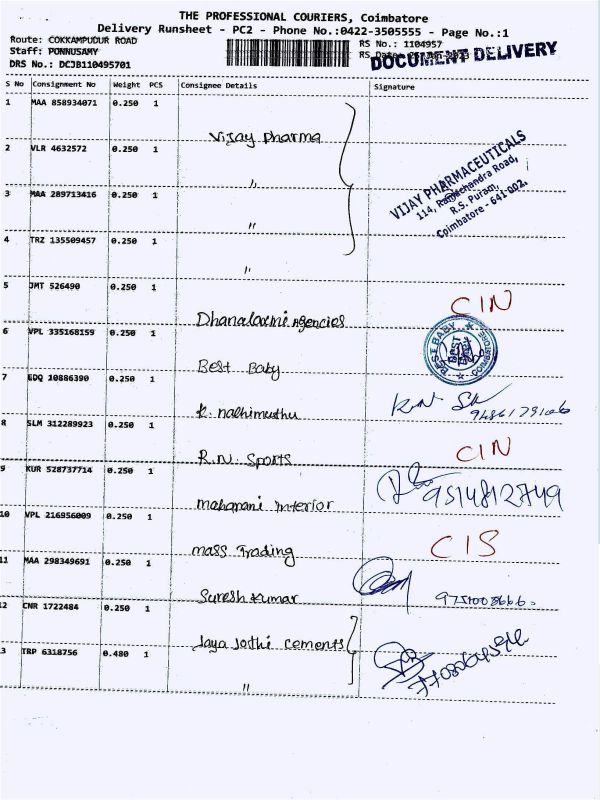 THE PROFESSIONAL COURIERS, Coimbatore
Delivery Runsheet - PC2 - Phone No.:0422-3505555 - Page No.:1
Route: COKKAMPUDUR ROAD
RS No.: 1104957
Staff: PONNUSAMY
RS Date:
DOCUMENT DELIVERY
DRS No.: DCJB110495701
S No Consignment No Weight PCS Consignee Details Signature
1 MAA 858934071 0.250 1
Vijay Pharma
2 VLR 4632572 0.250 1
"
VIJAY PHARMACEUTICALS
114, Ramachandra Road,
R.S. Puram,
Coimbatore - 641-002.
3 MAA 289713416 0.250 1
"
4 TRZ 135509457 0.250 1
"
5 JMT 526490 0.250 1
Dhanalaxmi Agencies CIN
6 VPL 335168159 0.250 1
Best Baby
BEST BABY
COIMBATORE
7 EDQ 10886390 0.250 1
K. nachimuthu
8 SLM 312289923 0.250 1
R.N. Sports CIN
9 KUR 528737714 0.250 1
maharani interior 9514812749
10 VPL 216956009 0.250 1
mass Trading CIS
11 MAA 298349691 0.250 1
Suresh Kumar
12 CNR 1722484 0.250 1
Jaya Jothi cements
3 TRP 6318756 0.480 1
"